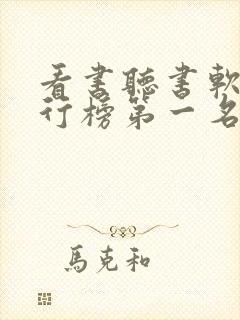 看書聽書軟
行榜第一名
馬克和